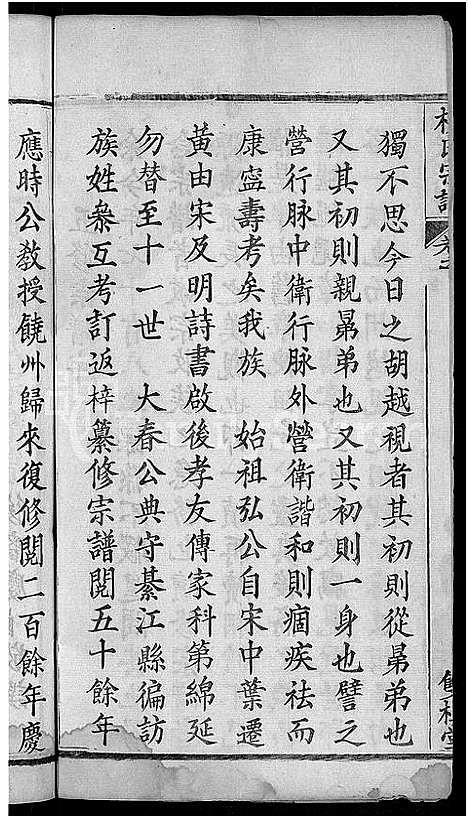 獨不思今日之胡越視者其初則從晜弟也
又其初則親晜弟也又其初則一身也譬之
營行脉中衛行脉外營衛諧和則痼疾祛而
康寍壽考矣我族 始祖弘公自宋中葉遷
黄由宋及明詩書啟後孝友傳家科第綿延
勿替至十一世 大春公典守綦江縣徧訪
族姓叅互考訂返梓纂修宗譜閱五十餘年
應時公敎授饒州歸來復修閱二百餘年慶